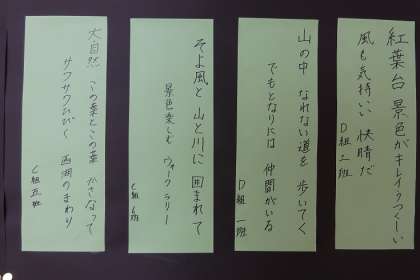 紅葉台 景色がキレイうつくしい
風も気持いい 快晴だ
D組二班
山の中 なれない道を 歩いてく
でもとなりには 仲間がいる
D組 一班
そよ風と 山と川に 囲まれて
景色楽しむ ウォークラリー
C組 6班
大自然 この葉とこの葉 かさなって
サワサワひびく 西湖のまわり
C組五班